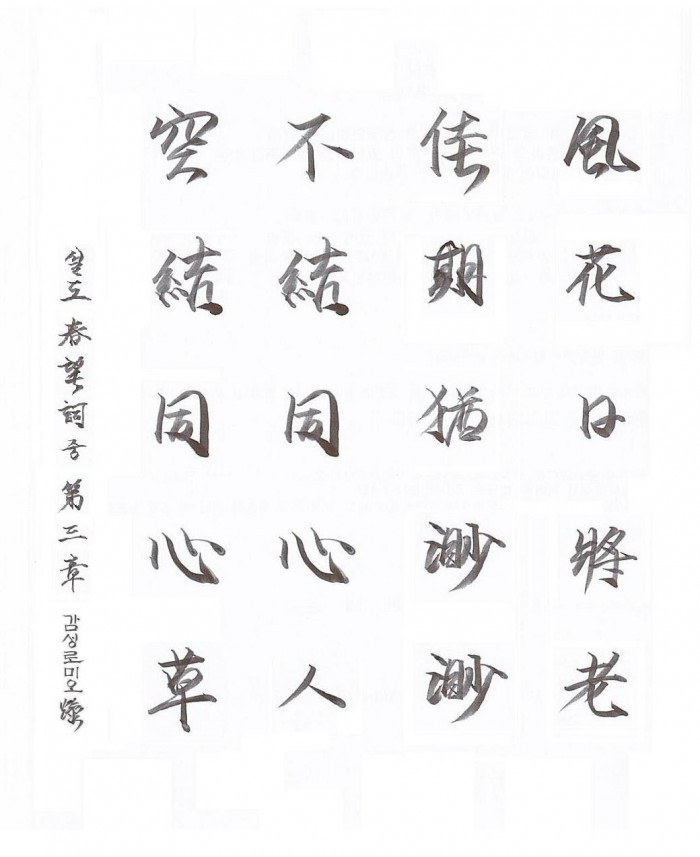 風花日將老
佳期猶渺渺
不結同心人
空結同心草
설도 春望詞 중 第三章 감성로미오